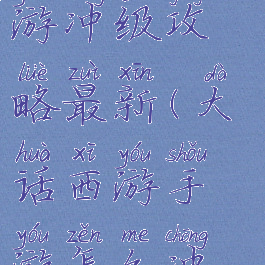 游冲级攻
lüè zuì xīn dà
略最新(大
huà xī yóu shǒu
话西游手
yóu zěn me chōng
游怎么冲